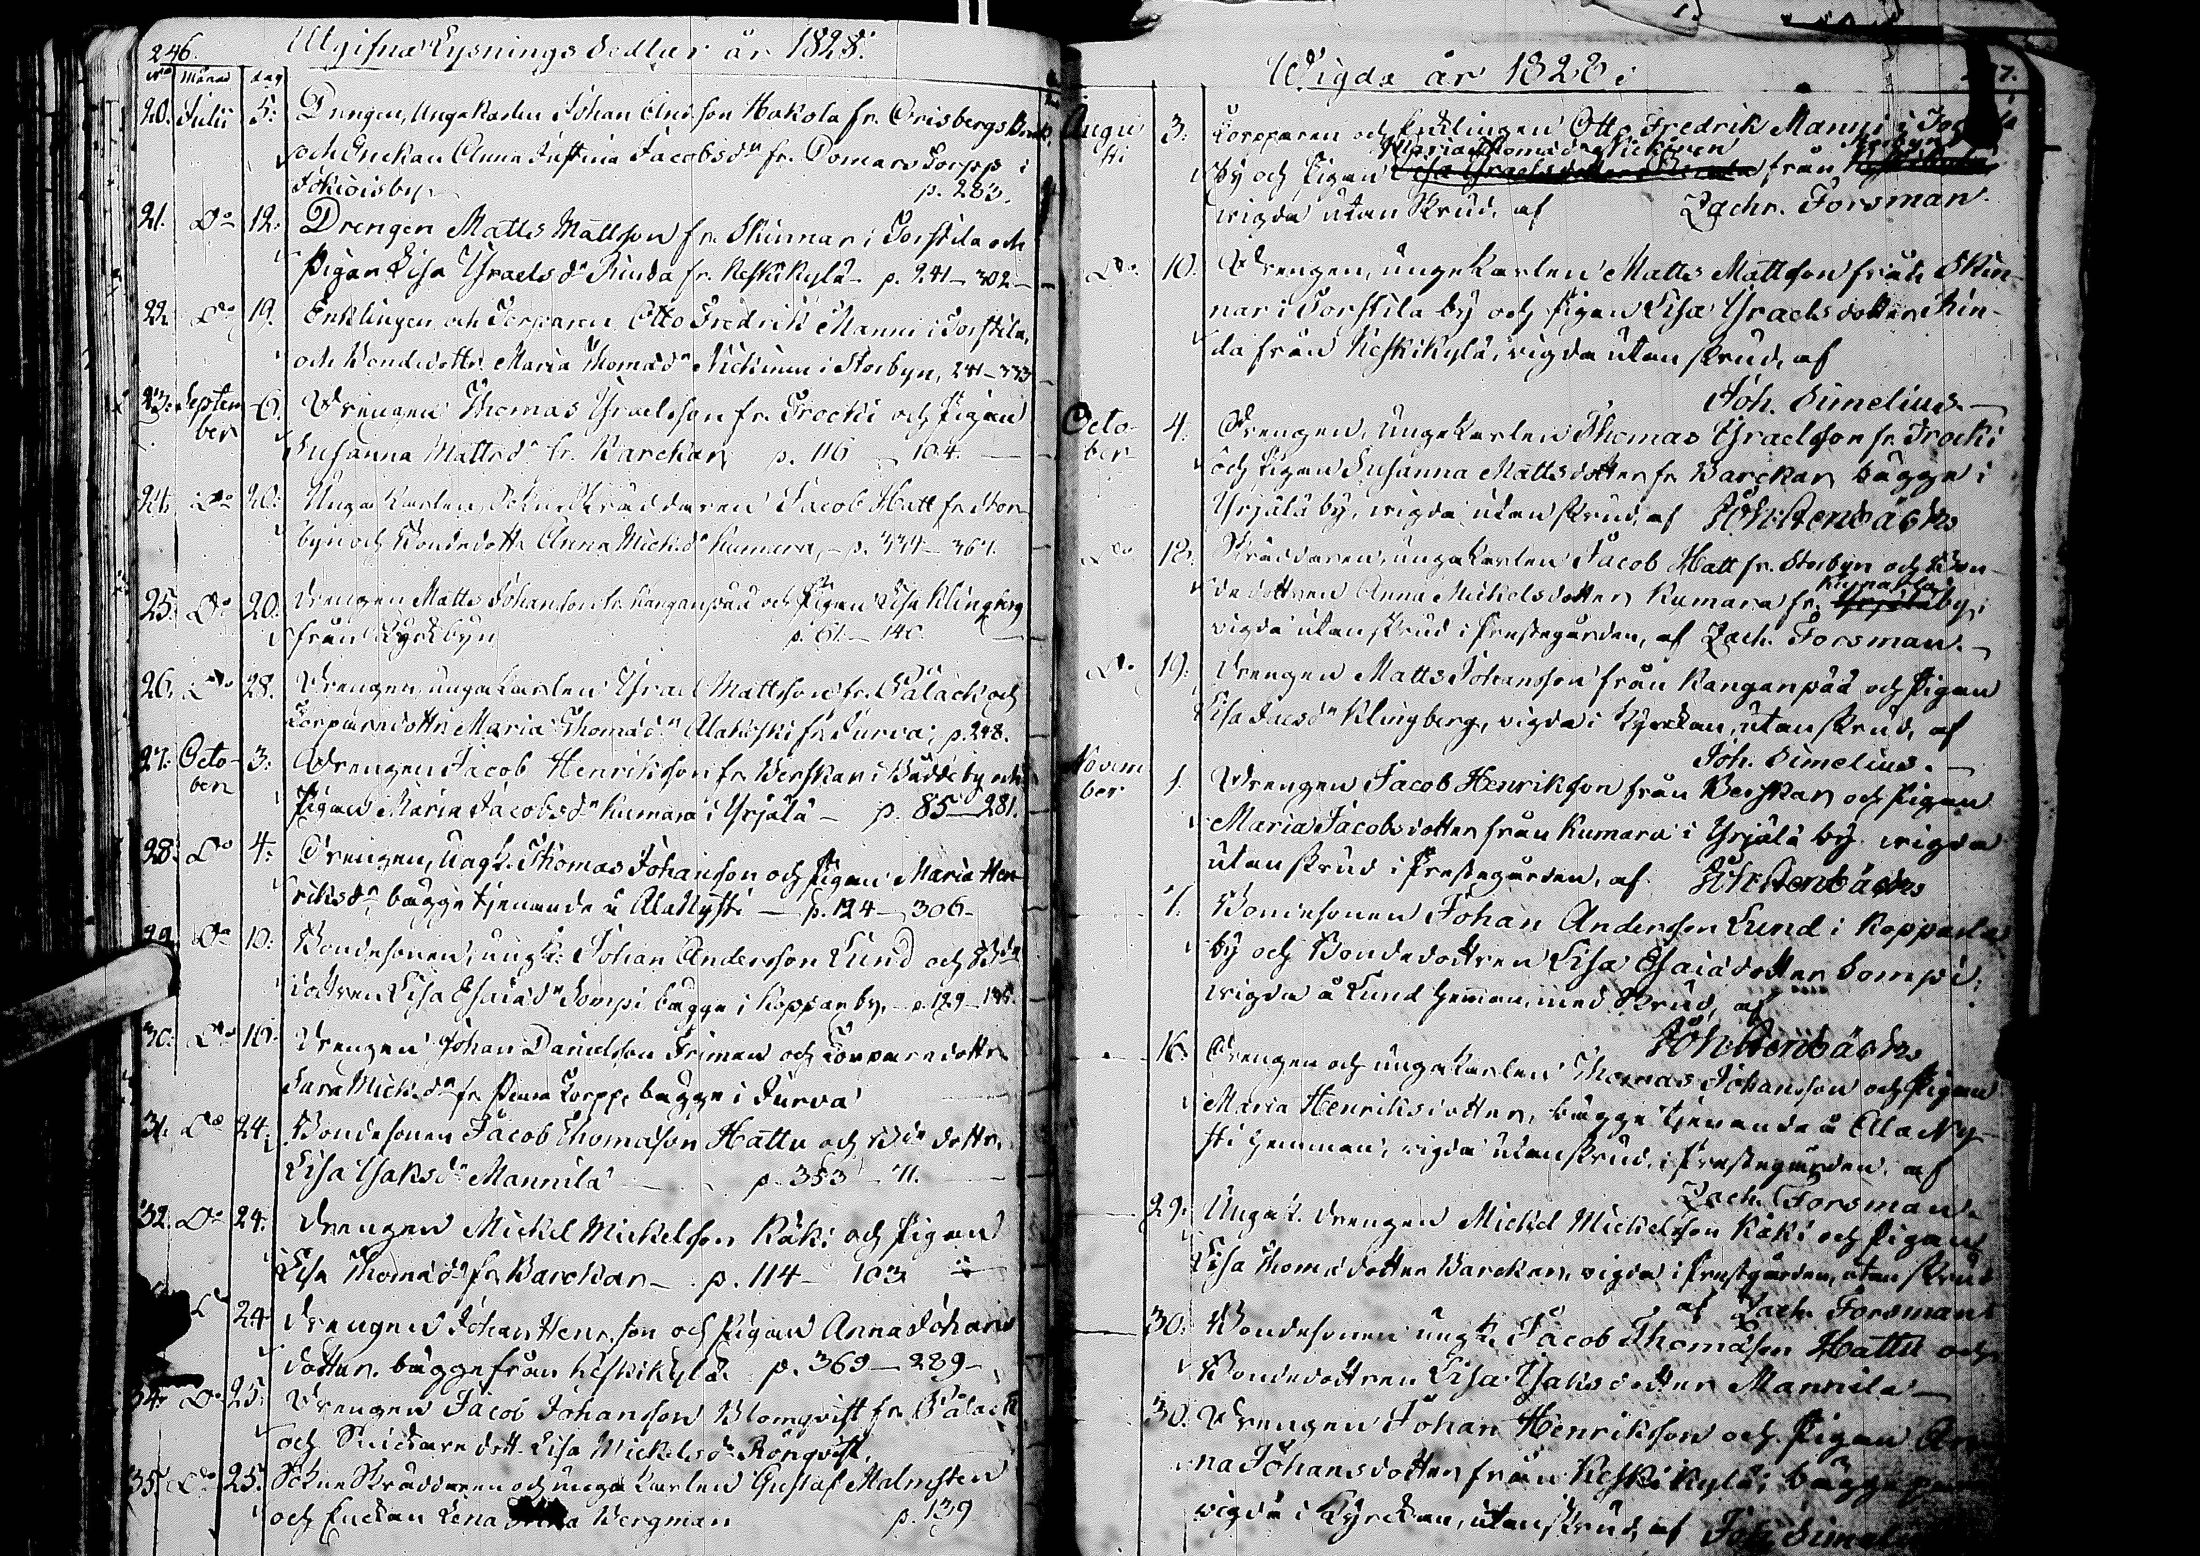 246.
Utgifna Lysnings Sedlar år 1828.
No Månad dag
20. Julii 5. Drengen, Ungakarlen Johan Hakola fr. Orisbergs Bruk,
och Enckan Anna Justina Jacobsdr fr. Domars Torpp i
p. 283.
21. Do 12. Drengen Matts Mattsson fr. Skinnar i Torstila och
Pigan Lisa Ysraelsdr Rinda fr. Keskikylä - p. 241 - 302 -
22. Do 19. Enklingen och Torparen Otto Fredrik Manni i Torstila,
och Bondedottr. Maria Thomasdr i Storbyn, 241 - 333
23. Septem 6. Drengen Thomas Ysraelsson fr. Trocki och Pigan
ber
Susanna Mattsdr fr. Warckar p. 116 - 104.
24. Do 20. Unga Karlen, Sokne Skräddaren Jacob Hatt fr. Stor-
byn och Bondedottr. Anna Mickdr Kumara, - p. 334 - 367.
25. Do 20. Drengen Matts Johansson fr. Kanganpää och Pigan Lisa Klingberg
från Kyrckbyn p. 61. - 140.
26. Do 28. Drengen, unga Karlen Ysrael Mattsson fr. Palack och
Torparedottr. Maria Thomasdr Alakoski fr. Jurva, p. 248.
27. Octo- 3. Drengen Jacob Henriksson fr. Werskar i och
ber
Pigan Maria Jacobsdr Kumara i Yrjälä - p. 85 - 281.
28. Do 4. Drengen, Ungk. Thomas Johansson och Pigan Maria Hen-
riksdr, bägge tjenande å Ala Nysti - p. 124 - 306 -
29. Do 10. Bondesonen, ungk. Johan Andersson Lund och Bonde
dottren Lisa Esaiædr Sompi bägge i Koppar by, - p. 129 -
30. Do Drengen Johan Danielsson Friman och Torparedottr.
Sara Mick.dr fr. Torpp, bägge i Jurva
31. Do 24. Bondesonen Jacob Thomasson Hattu och Bde dottr.
Lisa Isaksdr Mannila - p. 353 - 71.
32. Do 24. Drengen Mickel Mickelsson Käki och Pigan
Lisa Thomasdr fr. Warckar - p. 114 - 103
24. Drengen Johan Henr.son och Pigan Anna Johans
dotter, bägge från Keskikylä. p. 369 - 289 -
34. Do 25. Drengen Jacob Johansson Blomqvist fr. Palack
och dott. Lisa Mickelsdr Rönqvist.
35. Do 25. Sokne Skräddaren och unga Karlen Gustaf Malmsten
och Enckan Lena Bergman p. 139
Wigde år 1828.
Augu 3. Torpparen och Enklingen Otto Fredrik Manni i
sti
Maria Thomasdr
by och Pigan från
wigda utan Skrud, af Zachr. Forsman.
Do 10. Drengen, ungeKarlen Matts Mattsson från Skin-
nar i Torstila by och Pigan Lisa Ysraelsdotter Rin-
da från Keskikylä, wigda utan skrud, af
Joh. Simelius. -
Octo- 4. Drengen, ungeKarlen Thomas Ysraelsson fr. Trocki
ber
och Pigan Susanna Mattsdotter fr. Warckar, bägge i
Yrjälä by, wigda utan skrud, af Joh. Stenbäck
Do 12. Skräddaren, ungaKarlen Jacob Hatt fr. Storbyn och Bon-
dedottren Anna Mickelsdotter Kumara fr. by,
wigda utan skrud i Prestegården, af Zach. Forsman. -
Do 19. Drengen Matts Johansson från Kanganpää och Pigan
Lisa Klingberg, wigda i Kyrckan, utan skrud, af
Joh. Simelius. -
Novem 1. Drengen Jacob Henriksson från Werskar och Pigan
ber
Maria Jacobsdotter från Kumara i Yrjälä by wigda
utan skrud i Prestegården, af Joh. Stenbäck
7. Bondesonen Johan Andersson Lund i Koppar
by och Bondedottren Lisa Esaiædotter Sompi,
wigda å Lund hemman, med Skrud, af
Joh. Stenbäck
16. Drengen och ungaKarlen Thomas Johansson och Pigan
Maria Henriksdotter, bägge tjenande å Ala Ny-
sti hemman, wigda utan skrud, i Prestegården, af
Zach. Forsman.
29. Ungak. Drengen Mickel Mickelsson Käki och Pigan
Lisa Thomædotter Warckar, wigda i Prestgården, utan skrud
af Zach. Forsman
30. Bondesonen ungk. Jacob Thomasson Hattu och
Bondedottren Lisa Isaksdotter Mannila -
30. Drengen Johan Henriksson och Pigan An
na Johansdotter från Keskikylä, bägge
wigda i Kyrckan, utan skrud, af Joh. Simelius